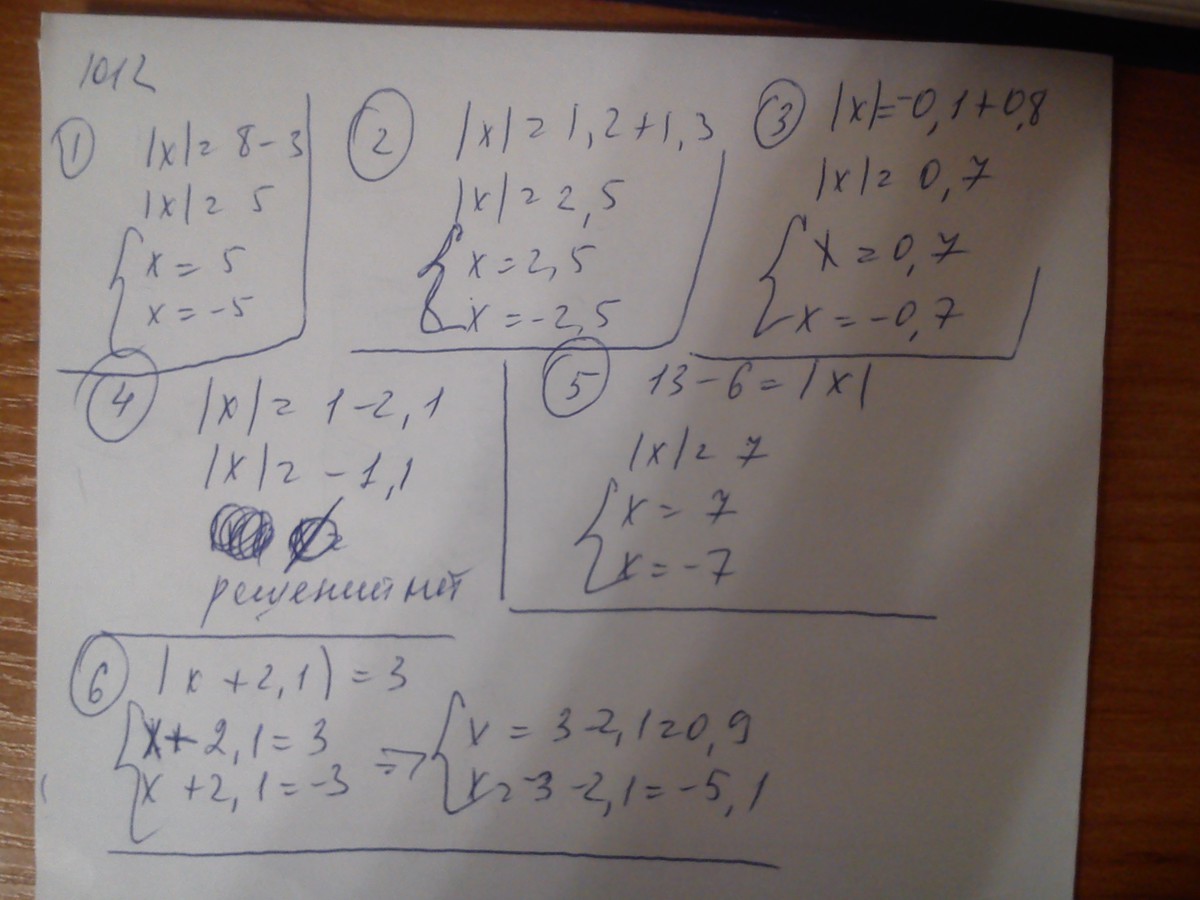 1012
① |x| = 8 - 3
|x| = 5
{ x = 5
x = -5
② |x| = 1,2 + 1,3
|x| = 2,5
{ x = 2,5
x = -2,5
③ |x| = -0,1 + 0,8
|x| = 0,7
{ x = 0,7
x = -0,7
④ |x| = 1 - 2,1
|x| = -1,1
решений нет
⑤ 13 - 6 = |x|
|x| = 7
{ x = 7
x = -7
⑥ |x + 2,1| = 3
{ x + 2,1 = 3 => { x = 3 - 2,1 = 0,9
x + 2,1 = -3 x = -3 - 2,1 = -5,1